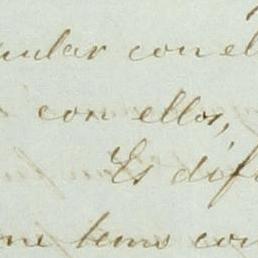 ular con el
con ellos,
Es dif
me temo con